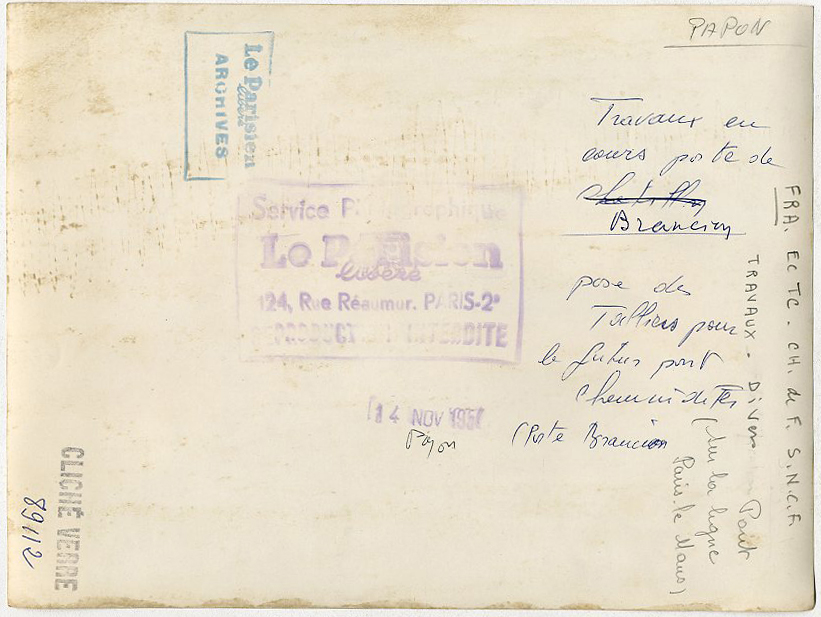 PAPON
Le Parisien
libéré
ARCHIVES
Travaux en
cours porte de
Chatillon
Brancion
pose des
pour
le futur pont
Chemin de Fer
(Porte Brancion
Service Photographique
Le Parisien
libéré
124, Rue Réaumur. PARIS-2e
REPRODUCTION INTERDITE
14 NOV 195
CLICHÉ VERRE
89112
FRA. Ec TC. CH. de F. S.N.C.F.
TRAVAUX - Divers Pont
(Sur la ligne
Paris. le Mans)